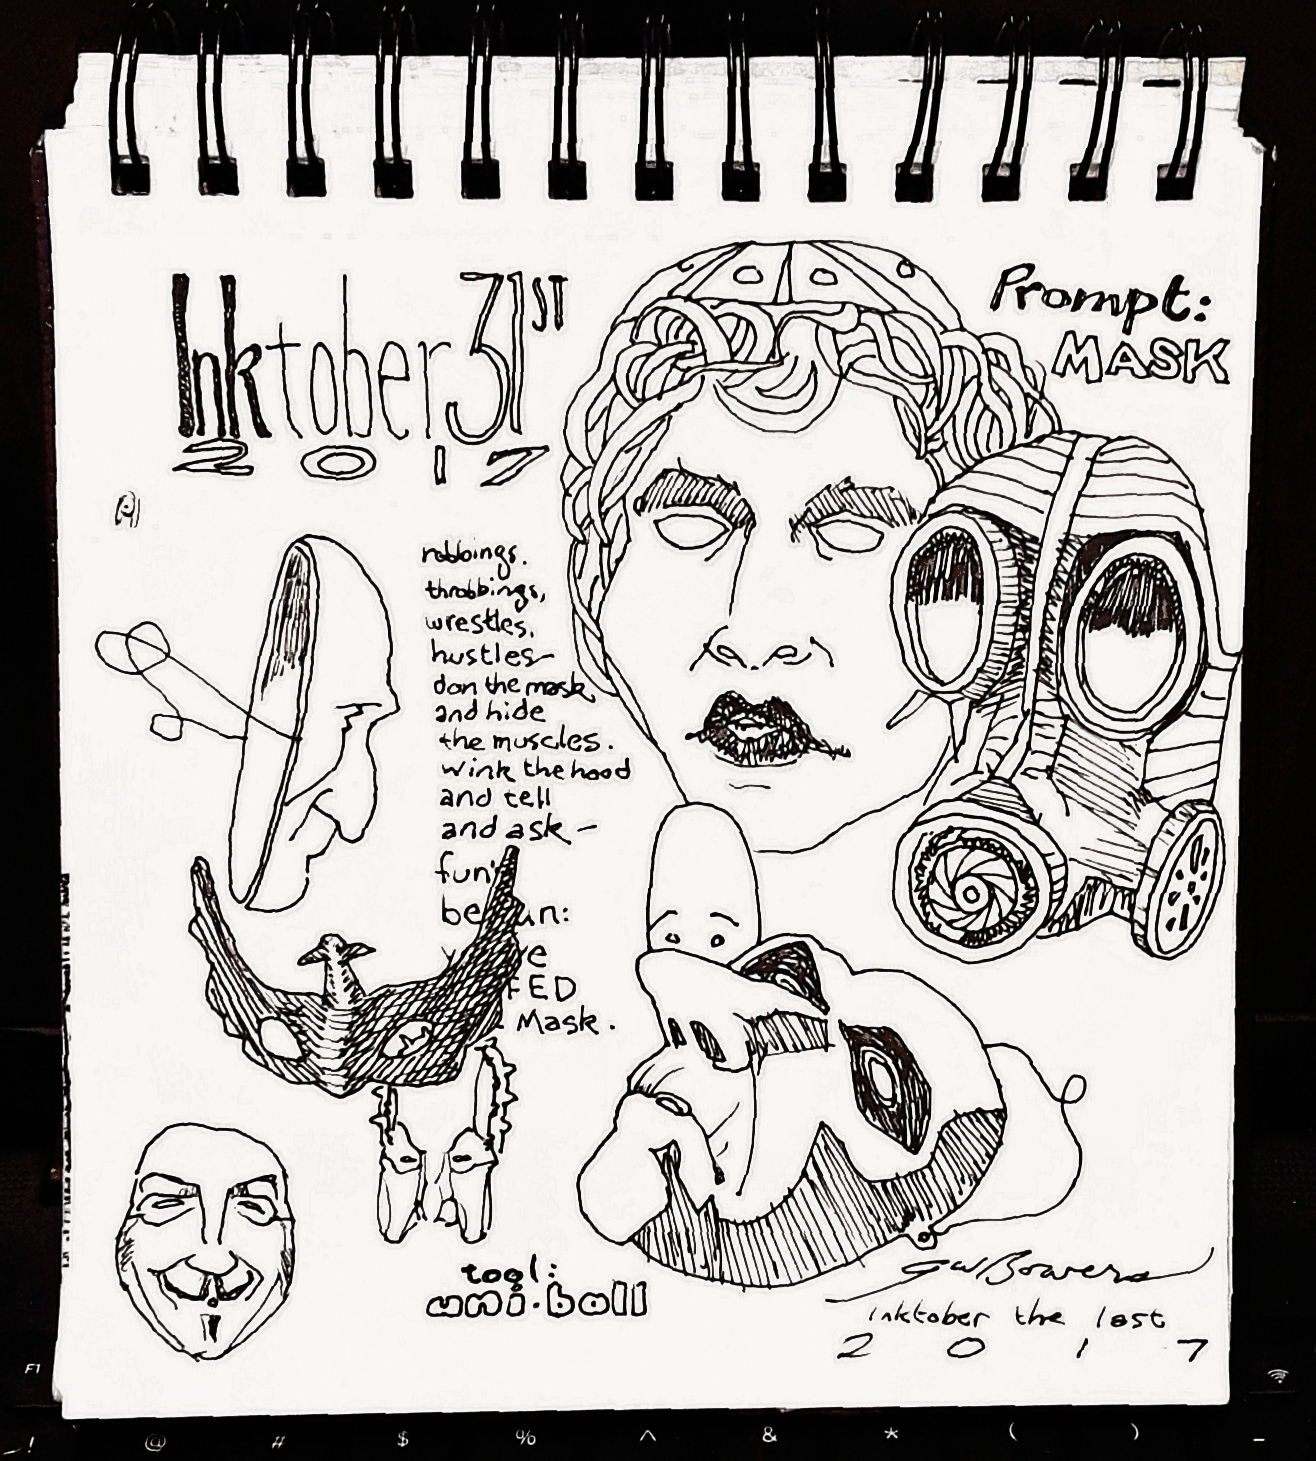 Inktober 31ST
2017
Prompt:
MASK
robbings.
throbbings,
wrestles,
hustles—
don the mask
and hide
the muscles.
wink the hood
and tell
and ask—
fun's
begun:
FED
Mask.
tool:
uni•ball
GW Bowers
Inktober the last
2017
F1
! @ # $ % ^ & * ( ) _